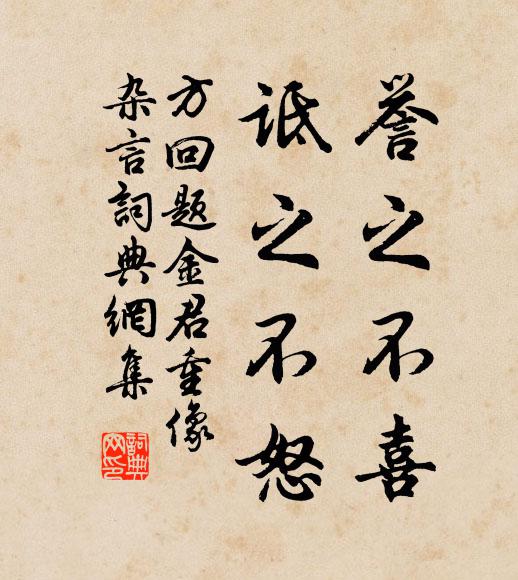 誉之不喜
诋之不怒
方回题金君重像
杂言詞典網集
詞典
网印